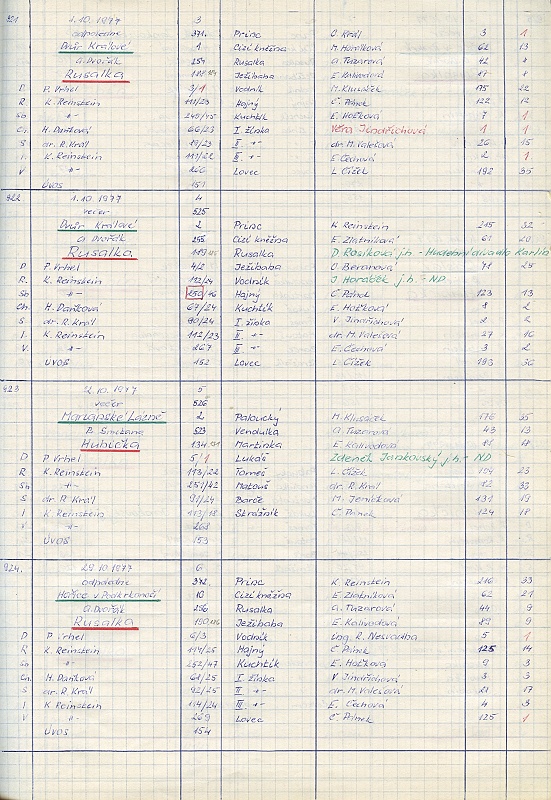 921 1.10.1977 3
odpoledne 371. Princ O. Král 3 1
Dvůr Králové 1 Cizí kněžna M. Hamlíková 62 13
A. Dvořák 254 Rusalka A. Tuzarová 42 8
Rusalka Ježibaba E. Kalivodová 17 8
D P. Vrhel 3/1 Vodník M. Klusáček 175 22
R K. Reinstein 111/23 Hajný Č. Pánek 122 12
Sb -"- 249/45 Kuchtík E. Hošková 7 1
Ch. H. Daňková 66/23 I. žínka Věra Jindřichová 1 1
S dr. R. Král 89/23 II -"- dr. M. Valešová 26 15
I. K. Reinstein 111/22 III -"- E. Čechová 2 1
V -"- 266 Lovec L. Čížek 192 35
ÚVOS 151
922 1.10.1977 4
večer 525
Dvůr Králové 2 Princ K. Reinstein 215 32
A. Dvořák 255 Cizí kněžna E. Zlatníková 61 20
Rusalka Rusalka D. Rosíková j.h. - Hudební divadlo Karlín
D P. Vrhel 4/2 Ježibaba O. Beranová 41 25
R. K. Reinstein 112/24 Vodník J. Horáček j.h. - ND
Sb -"- 250/46 Hajný Č. Pánek 123 13
Ch. H. Daňková 67/24 Kuchtík E. Hošková 8 2
S dr. R. Král 90/24 I. žínka V. Jindřichová 2 2
I. K. Reinstein 112/23 II. -"- dr. M. Valešová 27 16
V. -"- 267 III. -"- E. Čechová 3 2
ÚVOS 152 Lovec L. Čížek 193 36
923 2.10.1977 5
večer 526
Mariánské Lázně 2 Paloucký M. Klusáček 176 35
B. Smetana 523 Vendulka A. Tuzarová 43 13
Hubička Martinka E. Kalivodová 88 18
D P. Vrhel 5/1 Lukáš Zdeněk Jankovský j.h. - ND
R K. Reinstein 113/22 Tomeš L. Čížek 194 23
Sb -"- 251/42 Matouš dr. R. Král 12 33
S dr. R. Král 91/24 Barče M. Jeníčková 131 19
I K. Reinstein 113/18 Strážník Č. Pánek 124 18
V -"- 268
ÚVOS 153
924. 29.10.1977 6
odpoledne 372. Princ K. Reinstein 216 33
Hořice v Podkrkonoší 10 Cizí kněžna E. Zlatníková 62 21
A. Dvořák 256 Rusalka A. Tuzarová 44 9
Rusalka Ježibaba E. Kalivodová 89 9
D P. Vrhel 6/3 Vodník ing. R. Nesvadba 5 1
R K. Reinstein 114/25 Hajný Č. Pánek 125 14
Sb -"- 252/47 Kuchtík E. Hošková 9 3
Ch. H. Daňková 68/25 I. žínka V. Jindřichová 3 3
S dr. R. Král 92/25 II -"- dr. M. Valešová 28 17
I K. Reinstein 114/24 III. -"- E. Čechová 4 3
V -"- 269 Lovec Č. Pánek 125 1
ÚVOS 154